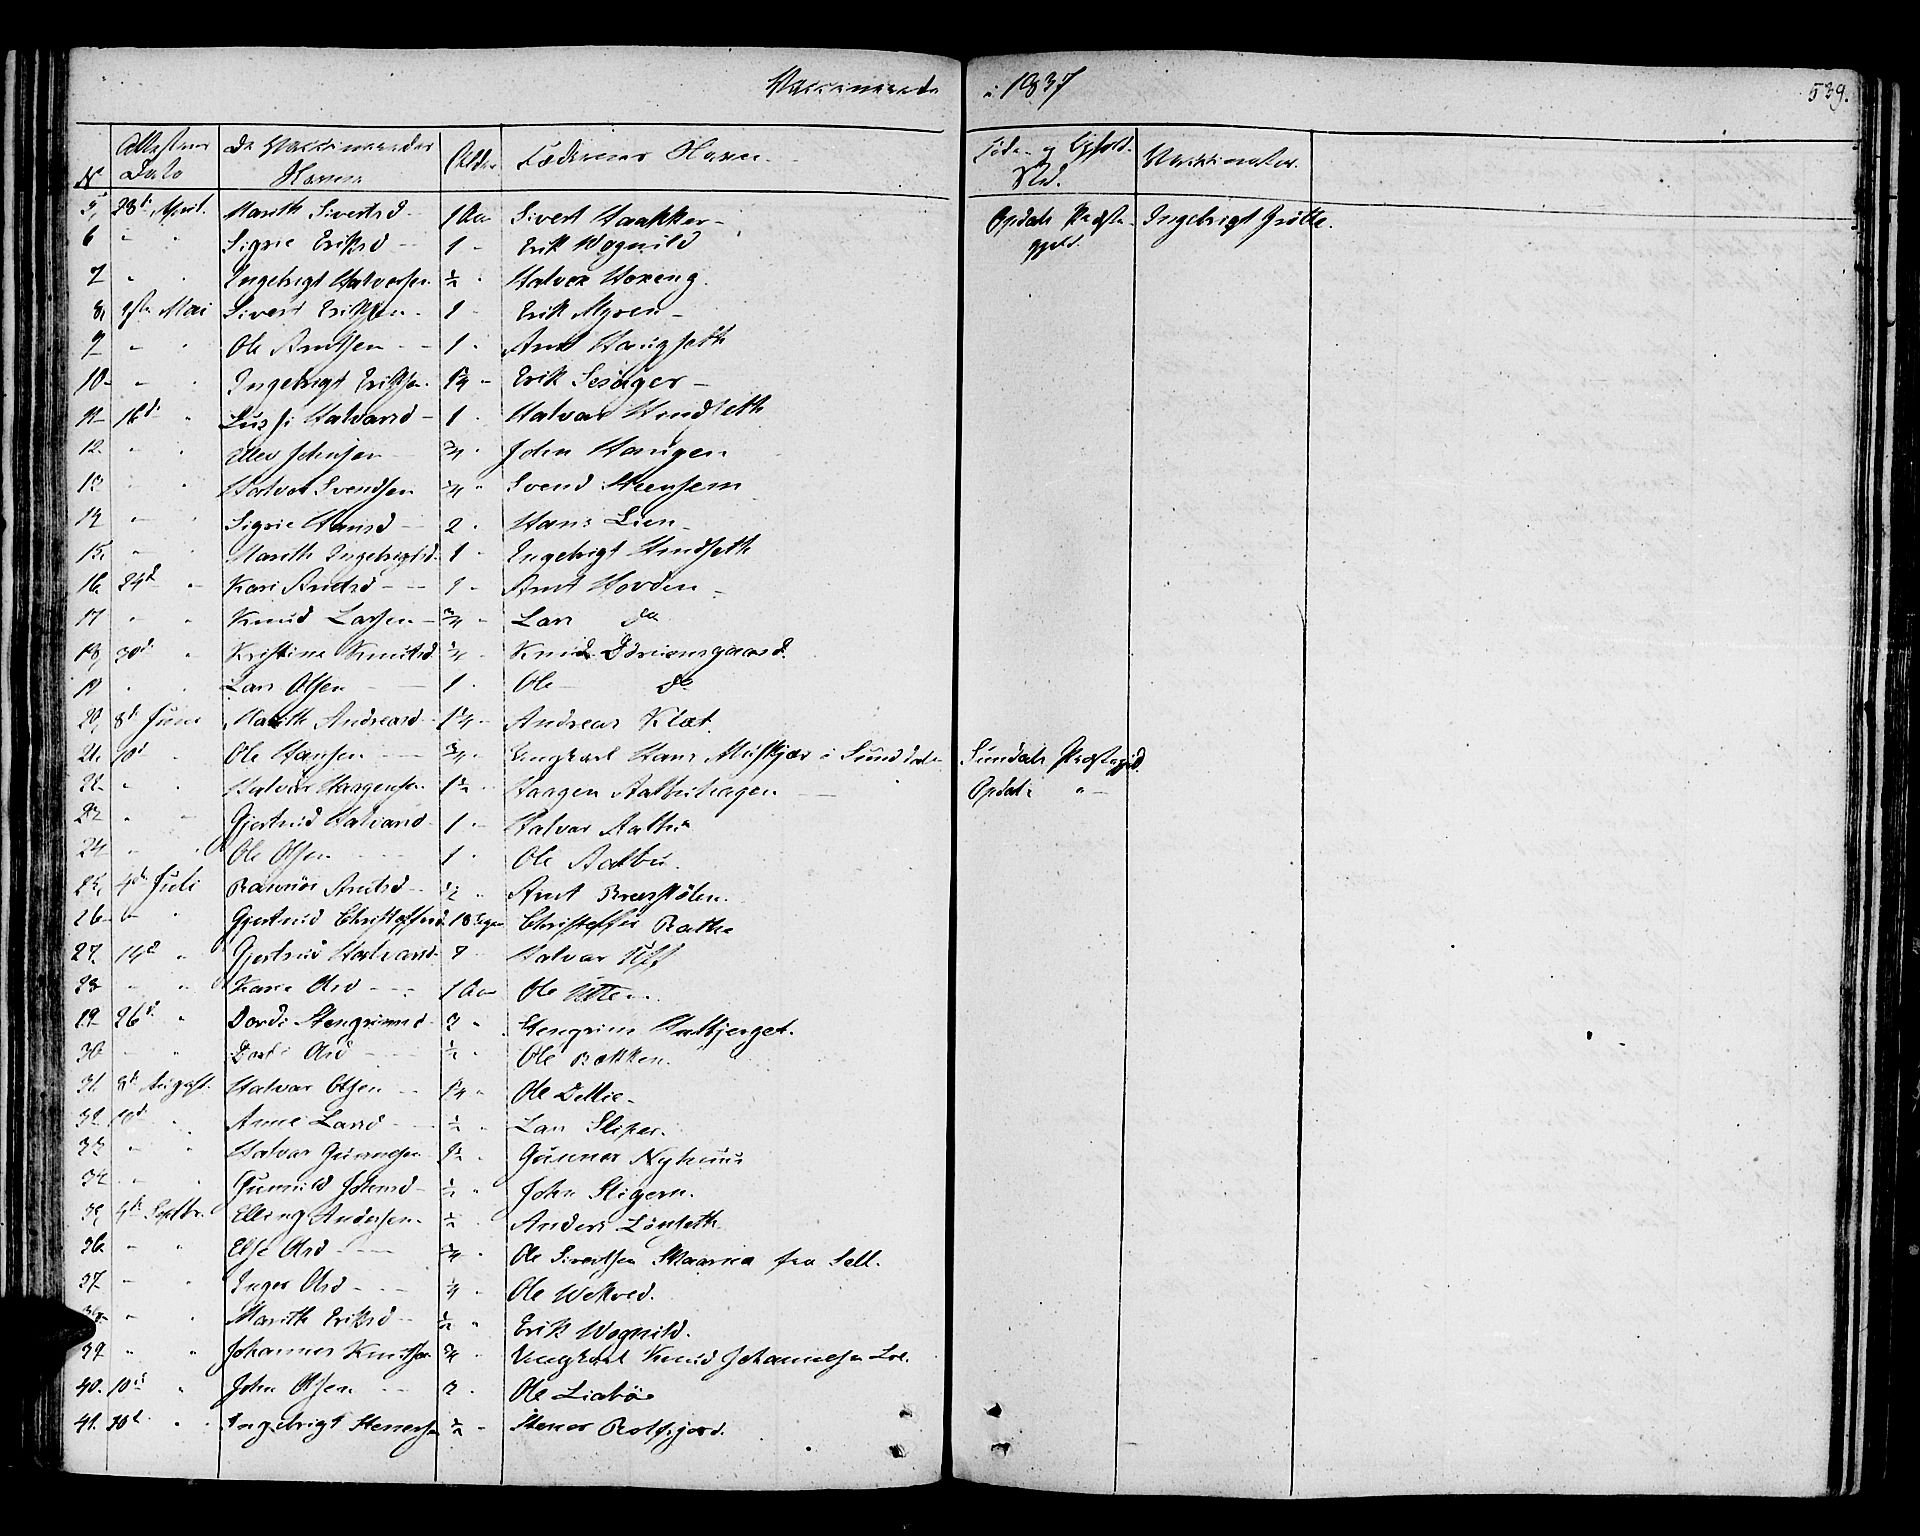 Vaccinerede i 1837
539.
N Attestens Dato De Vaccineredes Navne Alder Fædrenes Navn Føde- og Opfost. Sted. Vaccinator.
5, 28de April. Marith Sivertsd 1 Aar Sivert Haakker Opdals Præste Ingebrigt Grötte.
6 " " Sigrie Eriksd 1 " Erik Wognild gjeld.
7 " " Ingebrigt Halvorsen ½ " Halvor Horeng.
8, 1ste Mai Sivert Eriksen 1 " Erik Myren
9 " " Ole Arntsen 1 " Arnt Haugseth
10 " " Ingebrigt Eriksen Erik
11 16de " Halvarsd 1 " Halvar Hindseth
12. " " John Haugen
13 " " Halvor Svendsen ¼ " Svend Stensem
14 " " Sigrie Hansd 2 " Hans Lien
15, " " Marith Ingebrigtsd 1 " Ingebrigt Hindseth
16. 24de " Kari Arntsd 1 " Arnt Hovden
17 " " Knud Larsen ¾ " Lars do
18, 30de " Kristine Knutsd ¼ " Knud
19 " " Lars Olsen 1 " Ole do
20, 8de Juni Marith Andreasd 1¼ " Andreas Klæt.
21. 10de " Ole Hansen ¾ " Ungkarl Hans i Sunddal Sundals Præstegjd.
22. " " Halvor Haagensen 1½ " Haagen Aalbuhagen Opdals "
23 " " Gjertrud Halvarsd 1 " Halvar Aalbu
24 " " Ole Olsen 1 " Ole Aalbu.
25, 4de Juli Arntsd ½ " Arnt
26 " " Gjertrud Christoffersd 18 Uger Christoffer Rathe
27. 14de " Gjertrud Halvarsd Halvar
28 " " Karie Olsd 1 Aar Ole
29 26de " Dordi Stengrimsd Stengrim
30 " " Dordi Olsd ½ " Ole Bækken.
31. 8de August. Halvar Olsen 1¼ " Ole Dellie
32. 10de " Anne Larsd ½ " Lars Sliper.
33 " " Halvar Gunnersen 1½ " Gunner Nyhuus
34 " " Gunnild Johnsd ½ " John Stigern.
35, 4de Septbr. Elling Andersen ½ " Anders Lönseth
36 " " Else Olsd ¾ " Ole Sivertsen fra Sell.
37 " " Inger Olsd ¼ " Ole Wekved.
38 " " Marith Eriksd ½ " Erik Wognild.
39 " " Johannes Knutsen ¾ " Ungkarl Knud Johannesen Loe.
40. 10de " John Olsen Ole Liabö
41. 30de " Ingebrigt Stenersen ½ " Stener Rolfsjord.